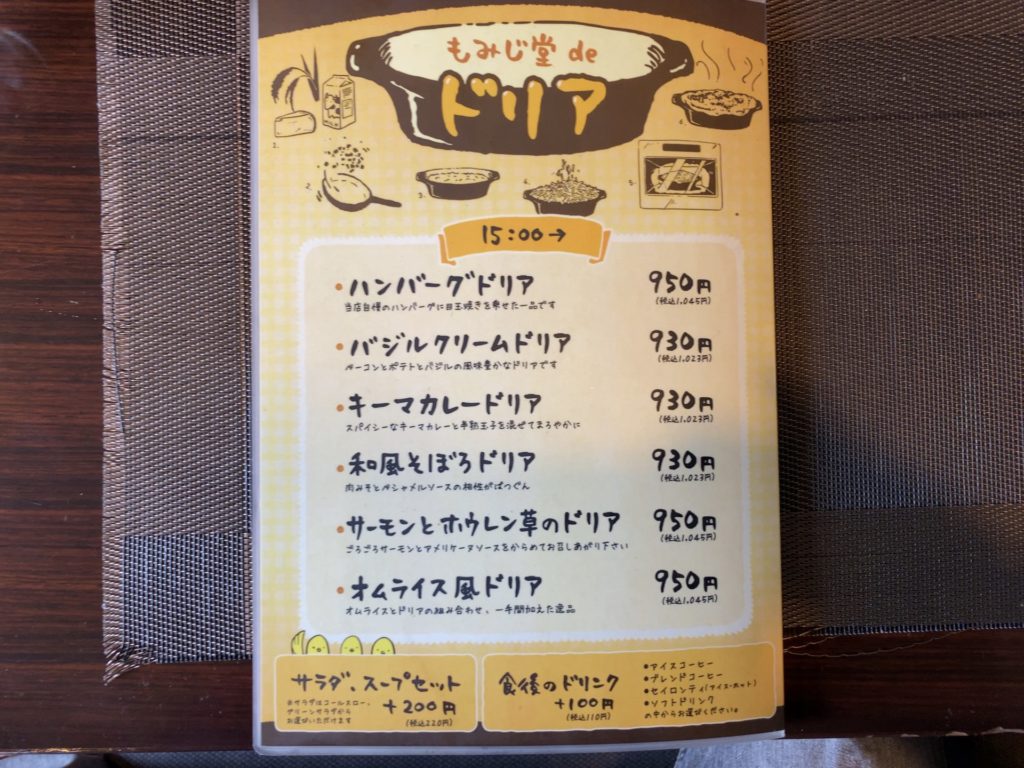 もみじ堂 de
ドリア
15:00→
•ハンバーグドリア 950円
当店自慢のハンバーグに目玉焼きを乗せた一品です (税込1.045円)
•バジルクリームドリア 930円
ベーコンとポテトとバジルの風味豊かなドリアです (税込1.023円)
•キーマカレードリア 930円
スパイシーなキーマカレーと半熟玉子を混ぜてまろやかに (税込1.023円)
•和風そぼろドリア 930円
肉みそとベシャメルソースの相性がばつぐん (税込1.023円)
•サーモンとホウレン草のドリア 950円
ごろごろサーモンとアメリケーヌソースをからめてお召しあがり下さい (税込1.045円)
•オムライス風ドリア 950円
オムライスとドリアの組み合わせ、一手間加えた逸品 (税込1.045円)
サラダ、スープセット
+200円
(税込220円)
※サラダはコールスロー、
グリーンサラダから
お選びいただけます
食後のドリンク
+100円
(税込110円)
•アイスコーヒー
•ブレンドコーヒー
•セイロンティ(アイス・ホット)
•ソフトドリンク
の中からお選びください。